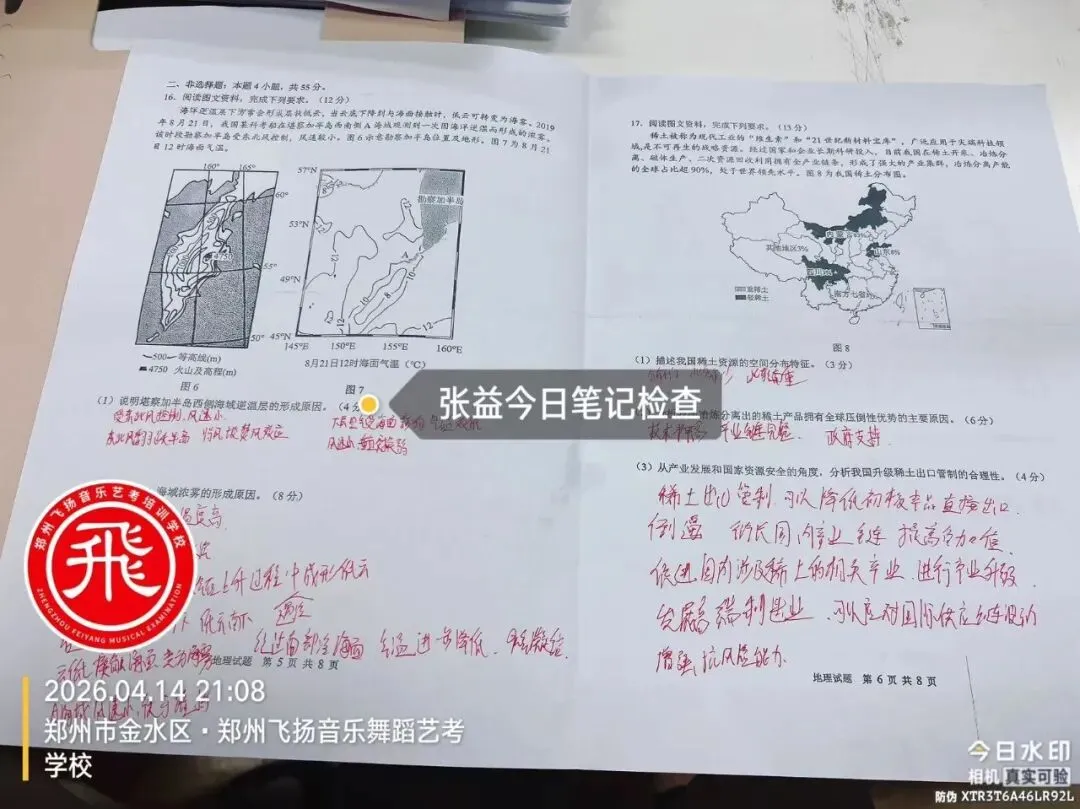 二、非选择题：本题4小题，共55分。
16．阅读图文资料，完成下列要求。（12分）
海洋逆温层下方常会形成层状低云，当云底下降到与海面接触时，低云可转变为海雾。2019
年8月21日，我国某科考船在堪察加半岛西南侧A海域观测到一次因海洋逆温而形成的浓雾。
该时段堪察加半岛受东北风控制，风速较小。图6示意勘察加半岛位置及地形。图7为8月21
日12时海面气温。
160° 165°
60°
4750
55°
50°
500 等高线(m)
4750 火山及高程(m)
图6
57°N
53°N
49°N
45°N
145°E 150°E 155°E 160°E
勘察加半岛
A
8
10
8
10
12
12
8月21日12时海面气温（℃）
图7
（1）说明堪察加半岛西侧海域逆温层的形成原因。（4分）
受东北风控制，风速小
（8分）
海域浓雾的形成原因。
温度高
上升过程中成形低云
经过南部冷海面 进一步降低
地理试题 第5页共8页
17．阅读图文资料，完成下列要求。（13分）
稀土被称为现代工业的“维生素”和“21世纪新材料宝库”，广泛应用于尖端科技领
域，是不可再生的战略资源。经过国家和企业长期科研投入，目前我国在稀土开采、冶炼分
离、磁体生产、二次资源回收利用拥有全产业链条，形成了强大的产业集群，冶炼分离产能
的全球占比超90%，处于世界领先水平。图8为我国稀土分布图。
内蒙古
其他地区3%
山东
四川
南方七省
重稀土
轻稀土
图8
（1）描述我国稀土资源的空间分布特征。（3分）
冶炼分离出的稀土产品拥有全球压倒性优势的主要原因。（6分）
产业链完整 政府支持
（3）从产业发展和国家资源安全的角度，分析我国升级稀土出口管制的合理性。（4分）
稀土出口管制 可以降低初级产品直接出口
倒逼 延长国内产业链 提高附加值
促进国内涉及稀土的相关产业 进行产业升级
发展高端制造业 可以应对国际供应链波动
增强抗风险能力
地理试题 第6页共8页
张益今日笔记检查
郑州飞扬音乐艺考培训学校
飛
ZHENGZHOU FEIYANG MUSICAL EXAMINATION
2026.04.14 21:08
郑州市金水区·郑州飞扬音乐舞蹈艺考
学校
今日水印
相机 真实可验
防伪 XTR3T6A46LR92L